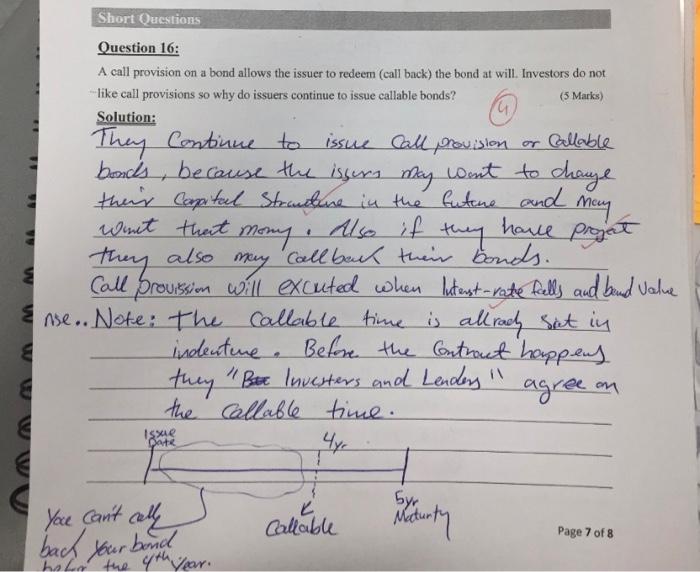 Short Questions
Question 16:
A call provision on a bond allows the issuer to redeem (call back) the bond at will. Investors do not
like call provisions so why do issuers continue to issue callable bonds? (5 Marks)
4
Solution:
They Continue to issue Call provision or Callable
bonds, because the issuers may want to change
their Capital Structure in the future and may
want that mony. Also if they have projat
they also may call back their bonds.
Call provission will excuted when Interst-rate falls and bond Value
nse.. Note: the Callable time is allrady Set in
indenture. Before the Contract happens
they " Investers and Lenders" agree on
the callable time.
Issue
Date
4yr
5yr
Maturity
Callable
You can't call
back your bond
the 4th year.
Page 7 of 8